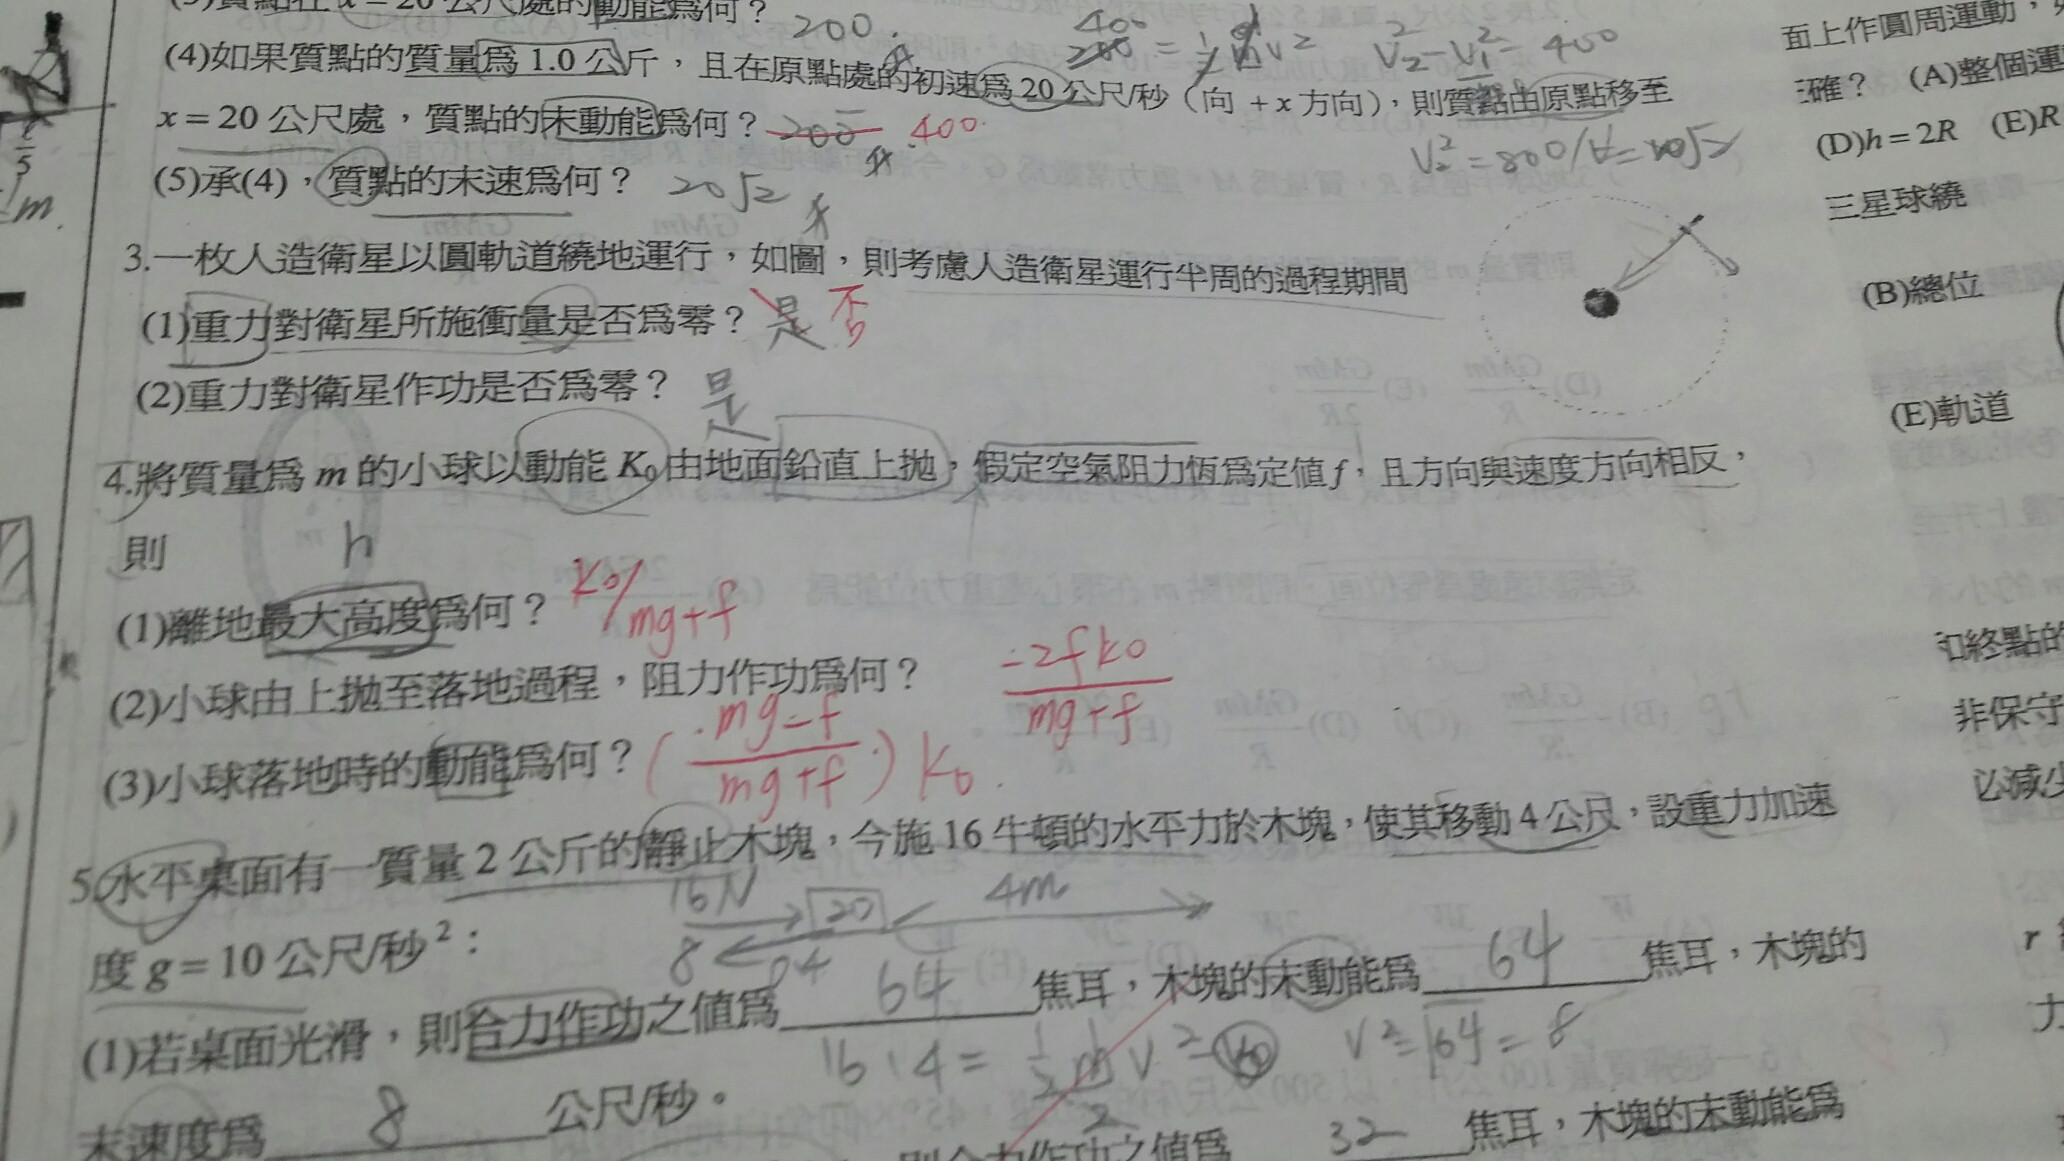 (3)質點在 x = 20 公尺處的動能為何？ 200
(4)如果質點的質量為 1.0 公斤，且在原點處的初速為 20 公尺/秒（向 +x 方向），則質點由原點移至
x = 20 公尺處，質點的末動能為何？ 200 400
(5)承(4)，質點的末速為何？ 20√2
3.一枚人造衛星以圓軌道繞地運行，如圖，則考慮人造衛星運行半周的過程期間
(1)重力對衛星所施衝量是否為零？ 是 否
(2)重力對衛星作功是否為零？ 是
4.將質量為 m 的小球以動能 K₀ 由地面鉛直上拋，假定空氣阻力恆為定值 f，且方向與速度方向相反，
則 h
(1)離地最大高度為何？ K₀/mg+f
(2)小球由上拋至落地過程，阻力作功為何？ -2fK₀/mg+f
(3)小球落地時的動能為何？ (mg-f/mg+f) K₀
5.水平桌面有一質量 2 公斤的靜止木塊，今施 16 牛頓的水平力於木塊，使其移動 4 公尺，設重力加速
16N 20 4m
度 g = 10 公尺/秒²：
8
(1)若桌面光滑，則合力作功之值為 64 焦耳，木塊的末動能為 64 焦耳，木塊的
V²=√64 = 8
末速度為 8 公尺/秒。
則合力作功之值為 32 焦耳，木塊的末動能為
400
V₂²-V₁²= 400
V₂²=800
面上作圓周運動，
確？ (A)整個運
(D)h = 2R (E)R
三星球繞
(B)總位
(E)軌道
和終點的
非保守
必減少
r
力